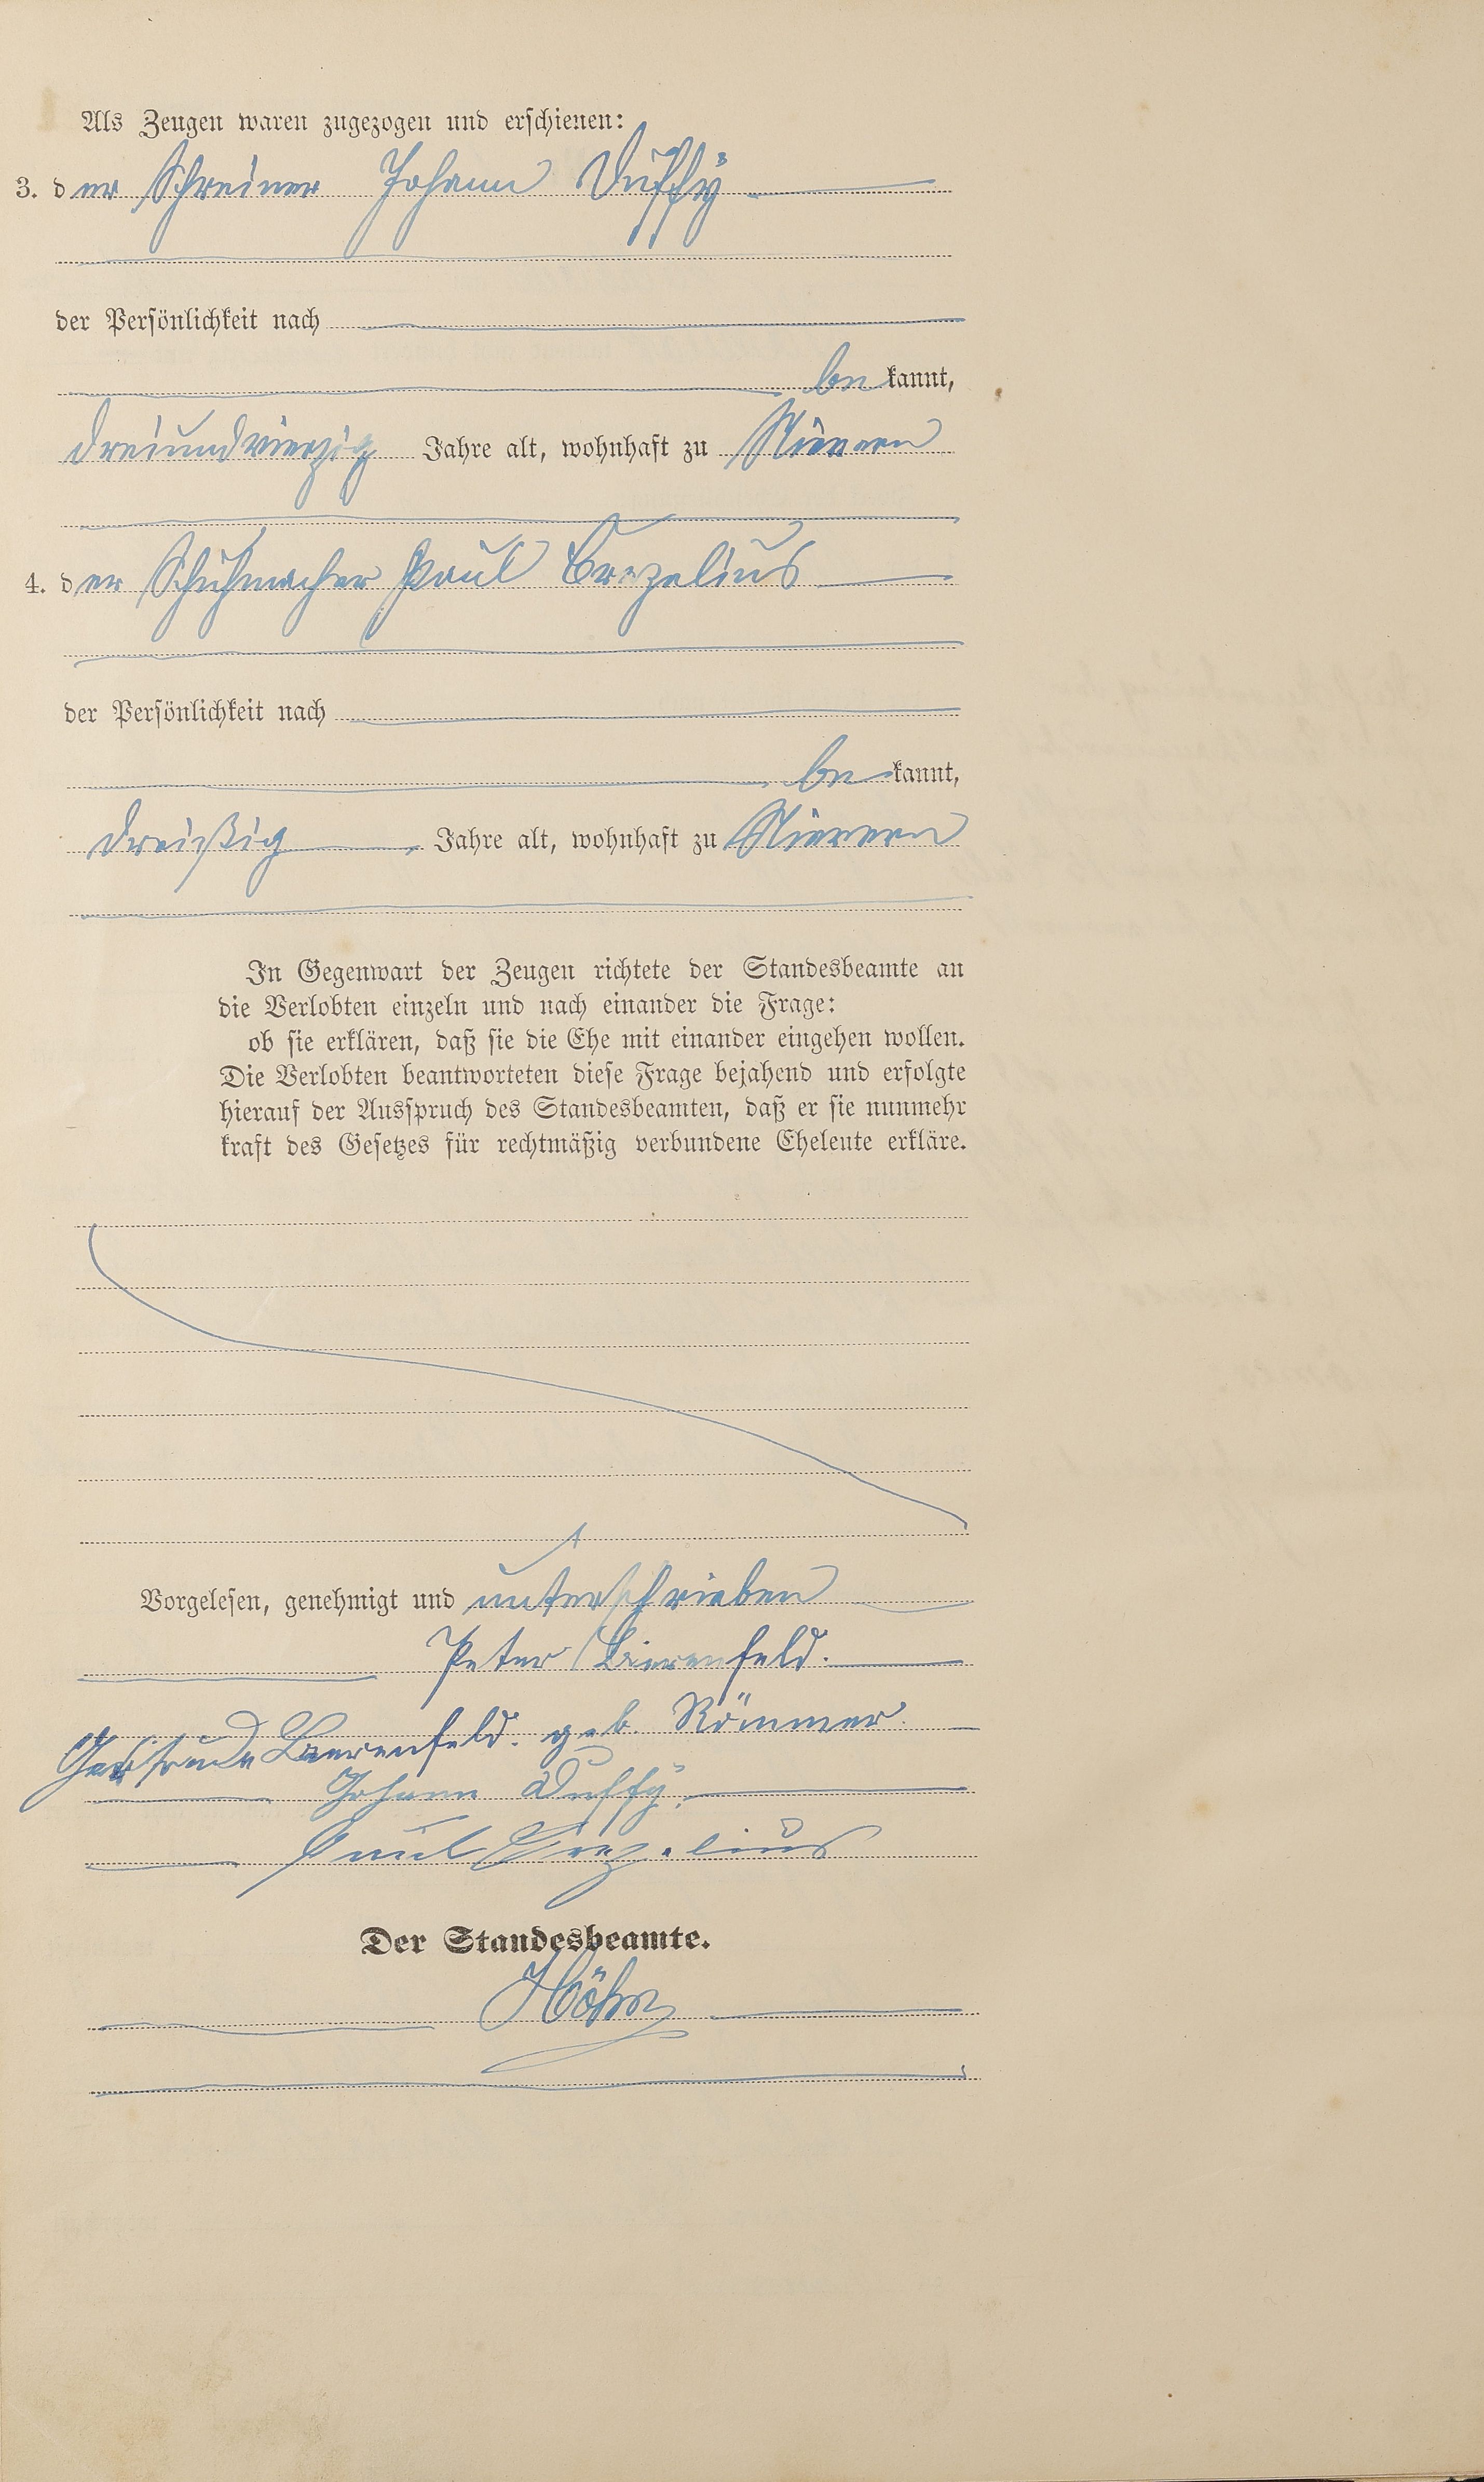 Als Zeugen waren zugezogen und erschienen:
3. der Schreiner Johann Duffÿ
der Persönlichkeit nach
be kannt,
dreiundvierzig Jahre alt, wohnhaft zu Nievern
4. der Schuhmacher Paul Brezelius
der Persönlichkeit nach
be kannt,
dreißig Jahre alt, wohnhaft zu Nievern
In Gegenwart der Zeugen richtete der Standesbeamte an
die Verlobten einzeln und nach einander die Frage:
ob sie erklären, daß sie die Ehe mit einander eingehen wollen.
Die Verlobten beantworteten diese Frage bejahend und erfolgte
hierauf der Ausspruch des Standesbeamten, daß er sie nunmehr
kraft des Gesetzes für rechtmäßig verbundene Eheleute erkläre.
Vorgelesen, genehmigt und unterschrieben
Peter Baierenfeld.
Gertrude Baerenfeld. geb. Römmer.
Johann Duffÿ.
Paul Brezelius
Der Standesbeamte.